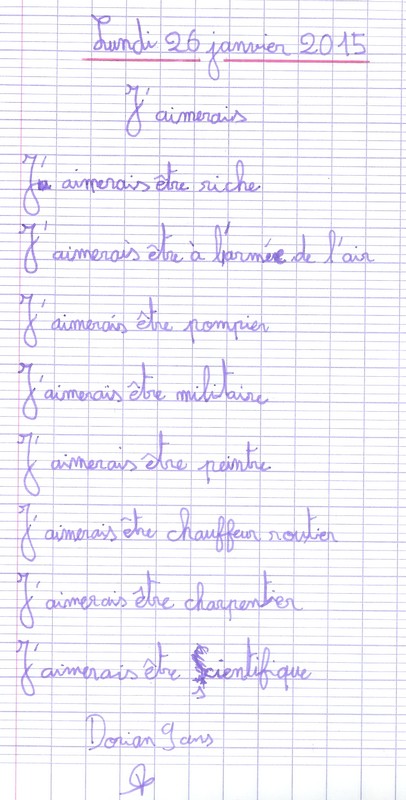 Lundi 26 janvier 2015
J'aimerais
J'aimerais être riche
J'aimerais être à l'armée de l'air
J'aimerais être pompier
J'aimerais être militaire
J'aimerais être peintre
J'aimerais être chauffeur routier
J'aimerais être charpentier
J'aimerais être scientifique
Dorian 9 ans